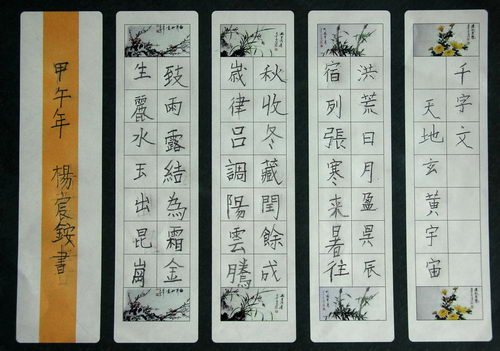 千字文
天地玄黃宇宙
洪荒日月盈昃辰
宿列張寒來暑往
秋收冬藏閏餘成
歲律呂調陽雲騰
致雨露結為霜金
生麗水玉出昆崗
甲午年 楊宸銨書